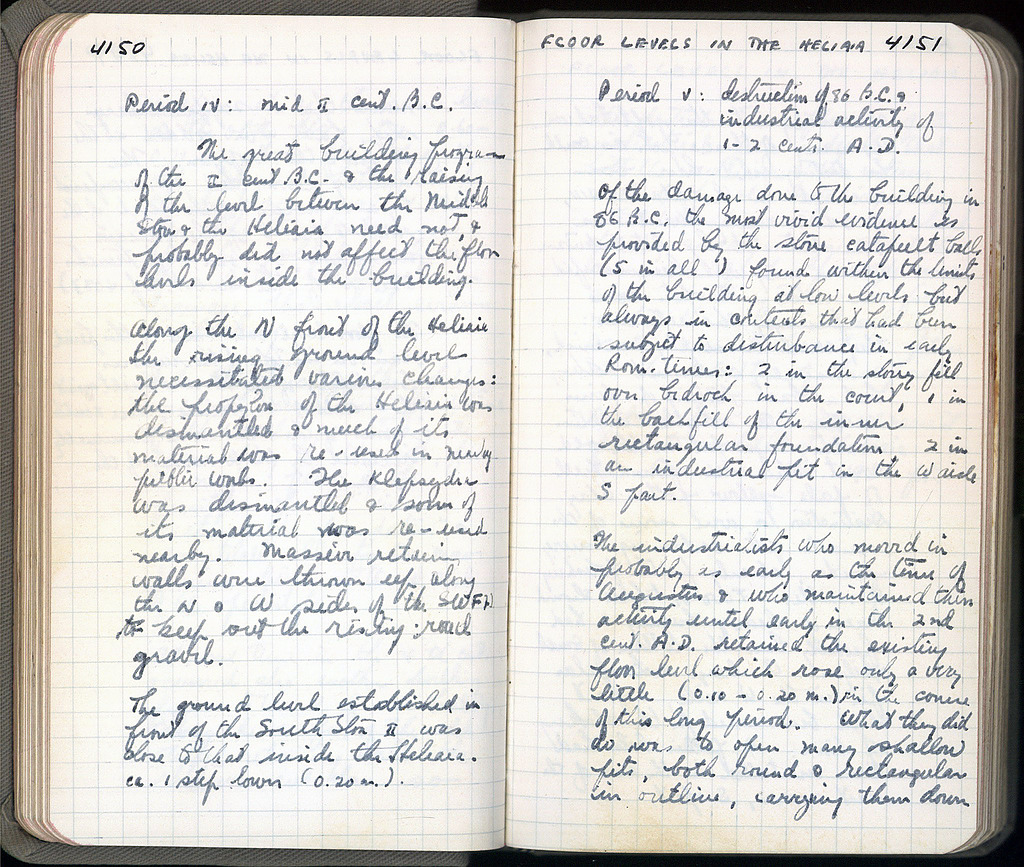 4150
Period IV: mid II cent. B.C.
The great building program
of the II cent B.C. & the raising
of the level between the Middle
Stoa & the Heliaia need not, &
probably did not affect the floor
levels inside the building.
Along the N front of the Heliaia
the rising ground level
necessitated various changes:
the propylon of the Heliaia was
dismantled & much of its
material was re-used in nearby
public works. The Klepsydra
was dismantled & some of
its material was re-used
nearby. Massive retaining
walls were thrown up along
the N & W sides of the SWFH
to keep out the rising road
gravel.
The ground level established in
front of the South Stoa II was
close to that inside the Heliaia.
ca. 1 step lower (0.20 m.).
FLOOR LEVELS IN THE HELIAIA 4151
Period V: destruction of 86 B.C. &
industrial activity of
1-2 cents. A.D.
Of the damage done to the building in
86 B.C. the most vivid evidence is
provided by the stone catapult balls
(5 in all) found within the limits
of the building at low levels but
always in contexts that had been
subject to disturbance in early
Rom. times: 2 in the stony fill
over bedrock in the court, 1 in
the backfill of the inner
rectangular foundation, 2 in
an industrial pit in the W aisle
S part.
The industrialists who moved in
probably as early as the time of
Augustus & who maintained their
activity until early in the 2nd
cent. A.D. retained the existing
floor level which rose only a very
little (0.10 - 0.20 m.) in the course
of this long period. What they did
do was to open many shallow
pits, both round & rectangular
in outline, carrying them down